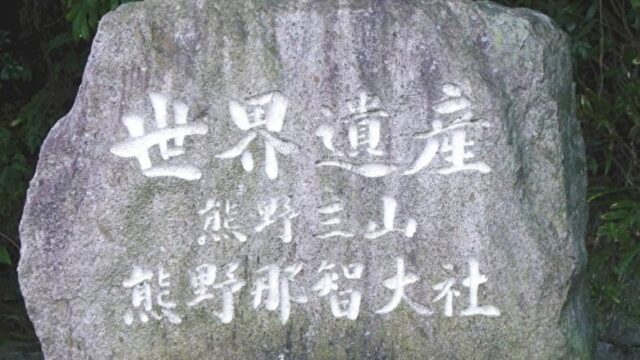 世界遺産
熊野三山
熊野那智大社